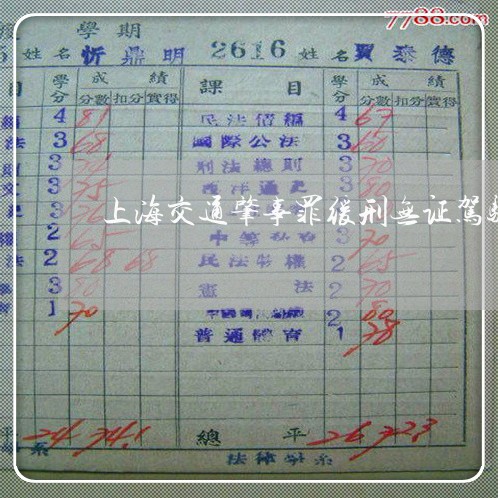 7788.com
學期
姓名 忻鼎明 2616 姓名 賈泰德
目 學分 成績 課目 學分 成績
分數 扣分 實得 分數 扣分 實得
4 81 民法債編 4 67
法 3 68 國際公法 3 60
3 刑法總則 3 70
3 75 西洋通史 3 80
上海交通肇事罪缓刑無证駕
2 65 3 70
法 2 68 68 民法物權 2 65
3 80 憲法 2 70
1 70 2 80
普通體育 1 78
平 24 74.1 總平 26 72.3
系 法律學系